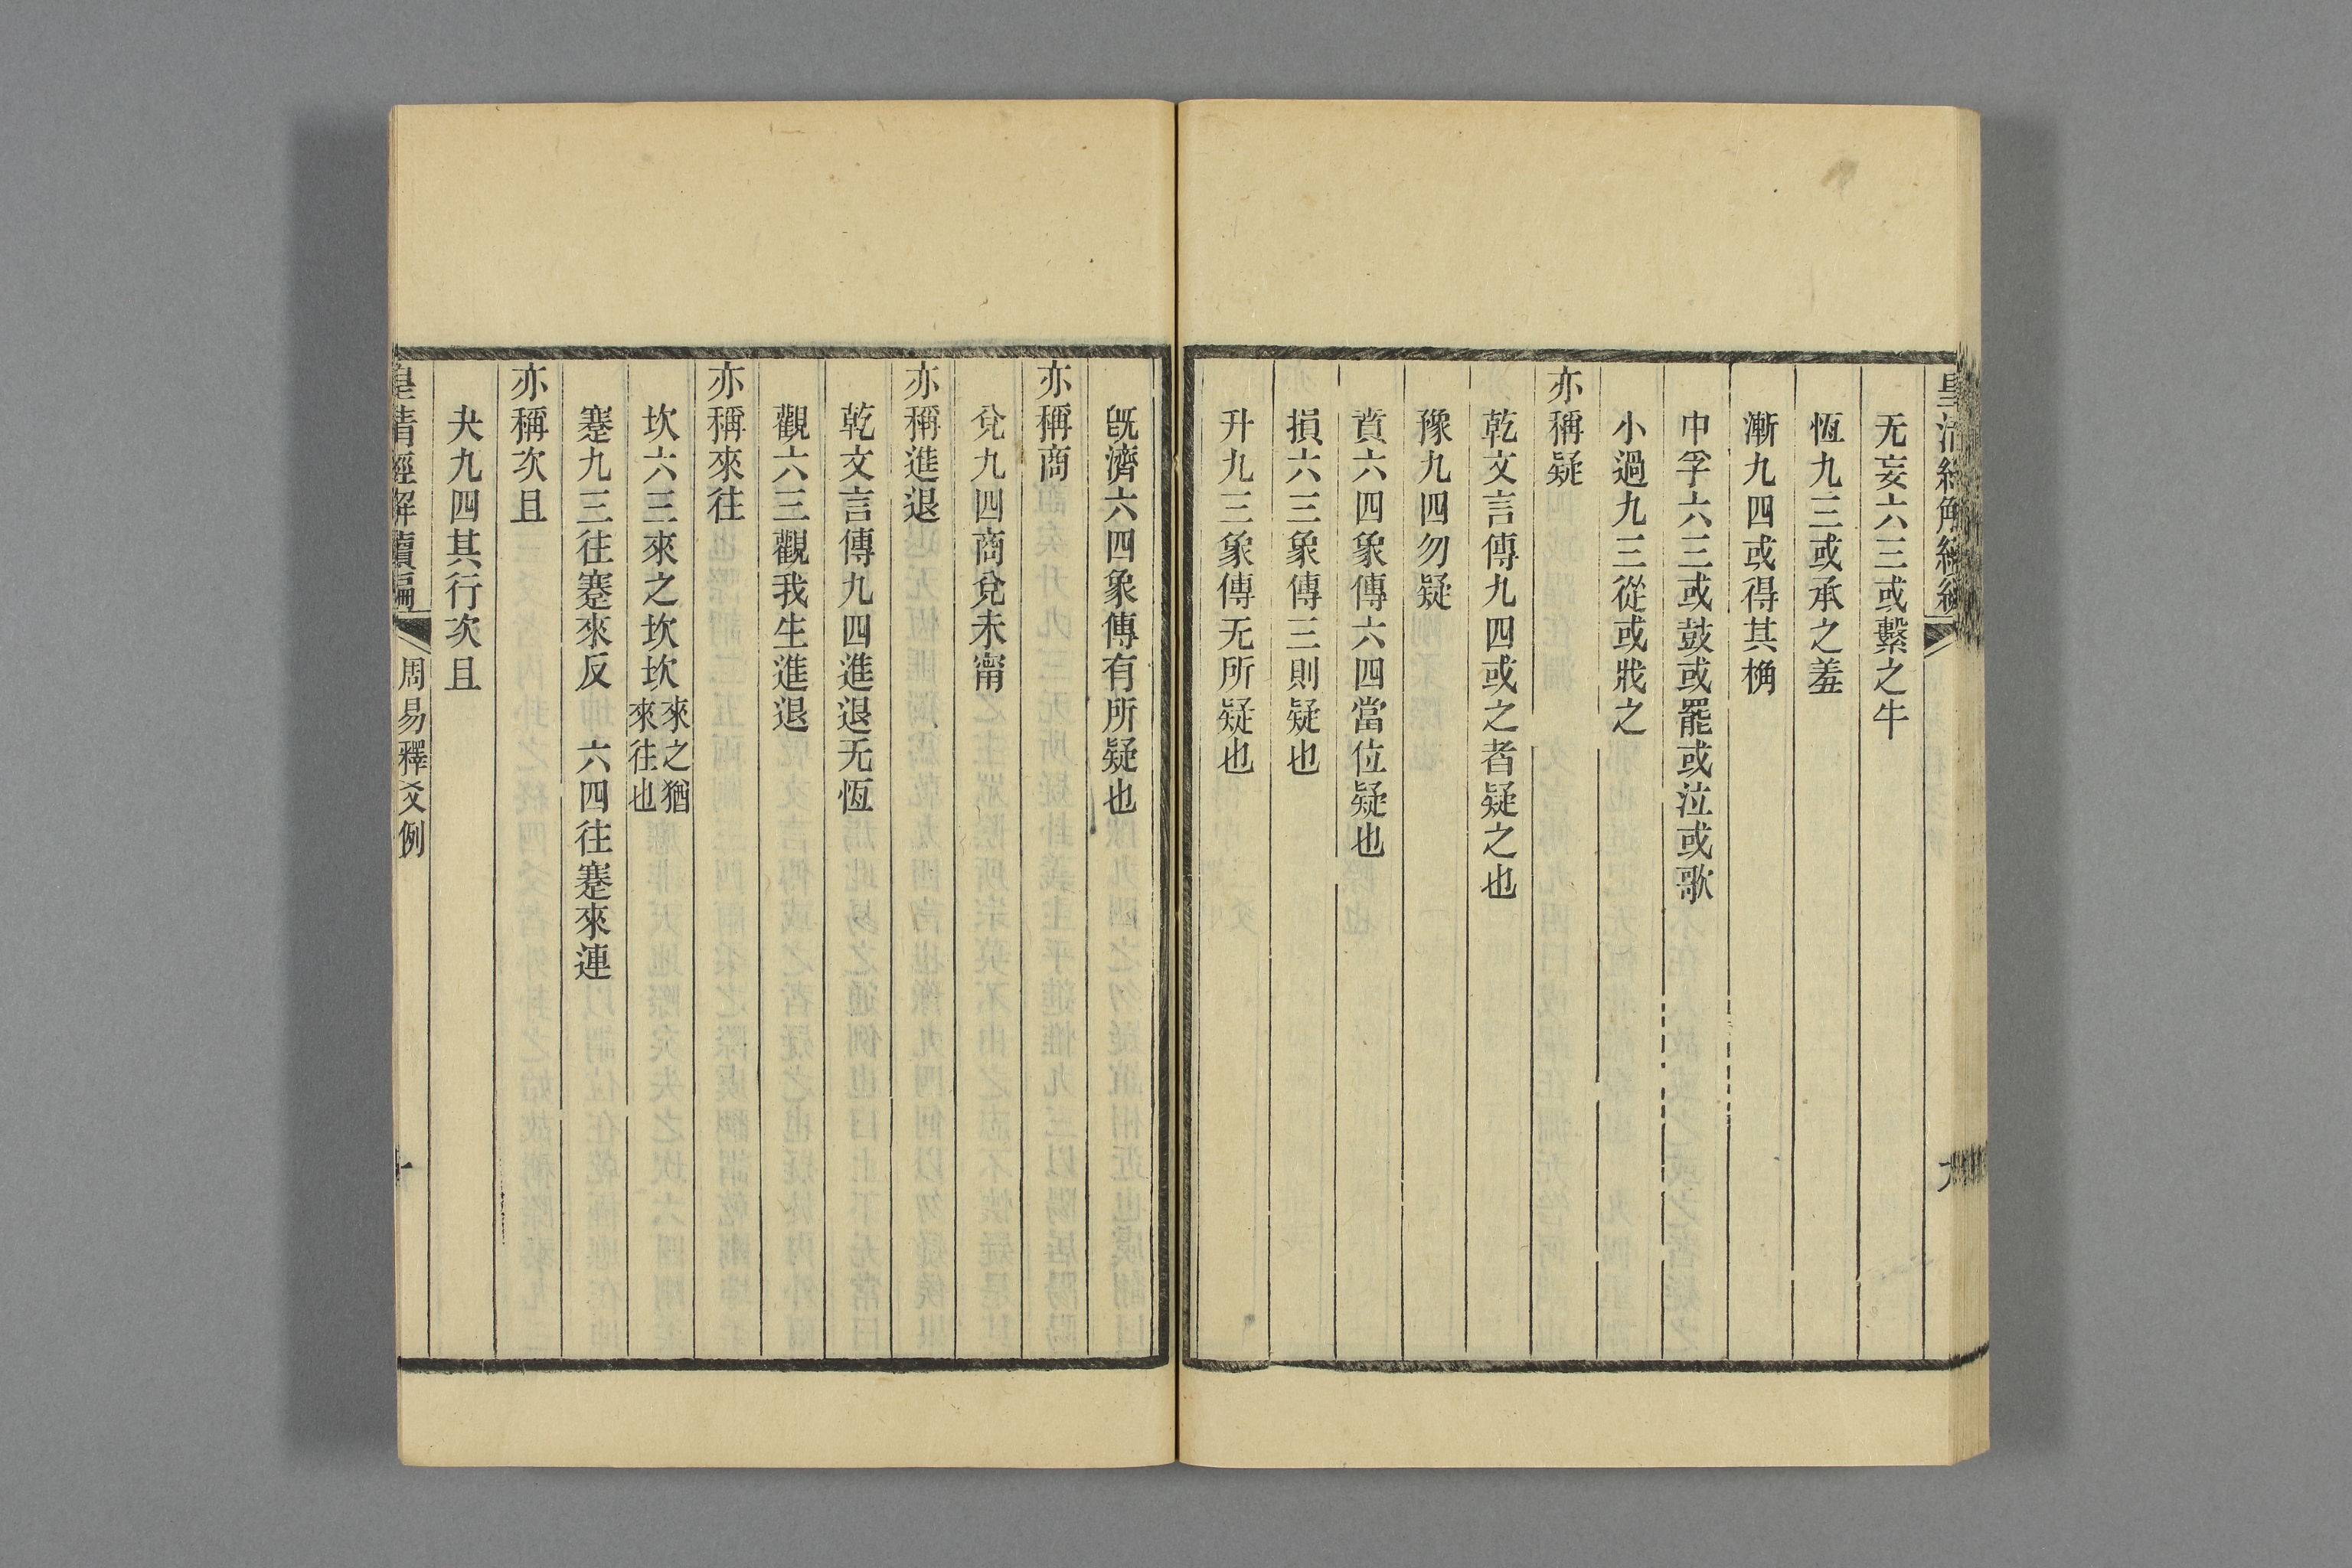 无妄六三或繫之牛
恆九三或承之羞
漸九四或得其桷
中孚六三或鼓或罷或泣或歌
小過九三從或戕之
亦稱疑
乾文言傳九四或之者疑之也
豫九四勿疑
賁六四象傳六四當位疑也
損六三象傳三則疑也
升九三象傳无所疑也
旣濟六四象傳有所疑也
亦稱商
兌九四商兌未甯
亦稱進退
乾文言傳九四進退无恆
觀六三觀我生進退
亦稱來往
坎六三來之坎坎來之猶來往也
蹇九三往蹇來反 六四往蹇來連
亦稱次且
夬九四其行次且
皇淸經解續編 周易釋爻例 十